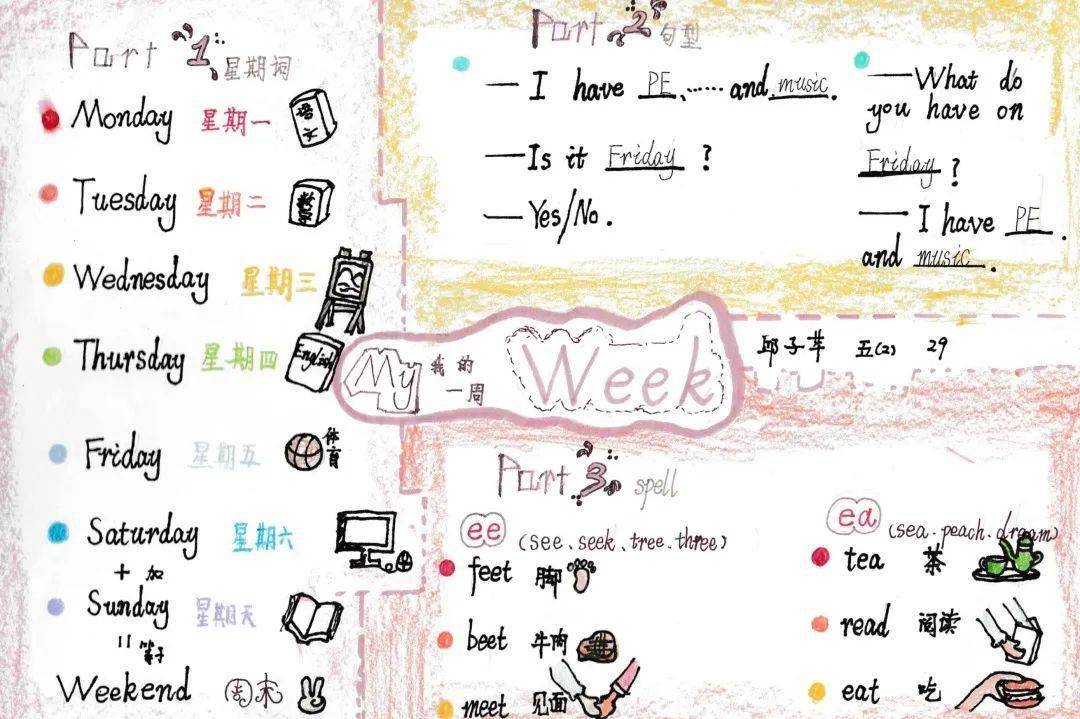 Part 1 星期词
Monday 星期一
语文
Tuesday 星期二
数学
Wednesday 星期三
Thursday 星期四
English
Friday 星期五
体育
Saturday 星期六
+ 加
Sunday 星期天
= 等于
Weekend 周末
Part 2 句型
— I have PE、……and music.
— Is it Friday ?
— Yes/No.
— What do
you have on
Friday ?
— I have PE .
and music .
My 我的
一周
Week
五(2) 29
Part 3 spell
ee (see、seek、tree.three)
feet 脚
beet 牛肉
meet 见面
ea (sea.peach.dream)
tea 茶
read 阅读
eat 吃